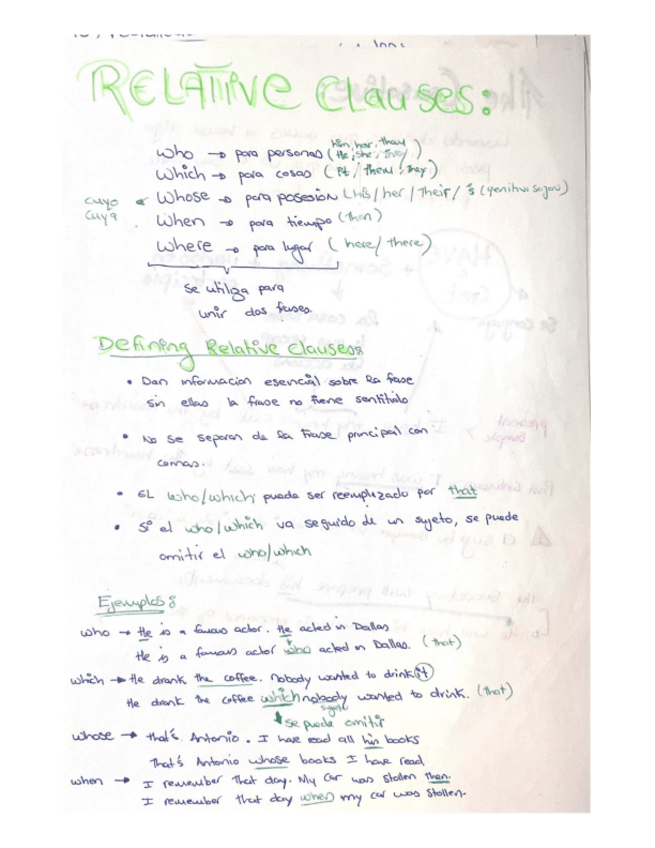 RELATIVE Clauses:
him, her, them
Who → para personas (He, she, they)
Which → para cosas (It / them / they)
cuyo cuya ← Whose → para posesion (His / her / their / 's (genitivo sajon)
When → para tiempo (then)
Where → para lugar (here/there)
Se utiliza para
unir dos frases
Defining Relative Clauses:
• Dan informacion esencial sobre la frase
sin ellas la frase no tiene sentitido
• No se separan de la frase principal con
comas.
• El who/which puede ser reemplazado por that
• Si el who/which va seguido de un sujeto, se puede
omitir el who/which
Ejemplos:
who → He is a famous actor. He acted in Dallas
He is a famous actor who acted in Dallas. (that)
which → He drank the coffee. Nobody wanted to drink it
He drank the coffee which nobody wanted to drink. (that)
sujeto
↓ se puede omitir
whose → that's Antonio. I have read all his books
That's Antonio whose books I have read
when → I remember that day. My car was stolen then.
I remember that day when my car was stollen.